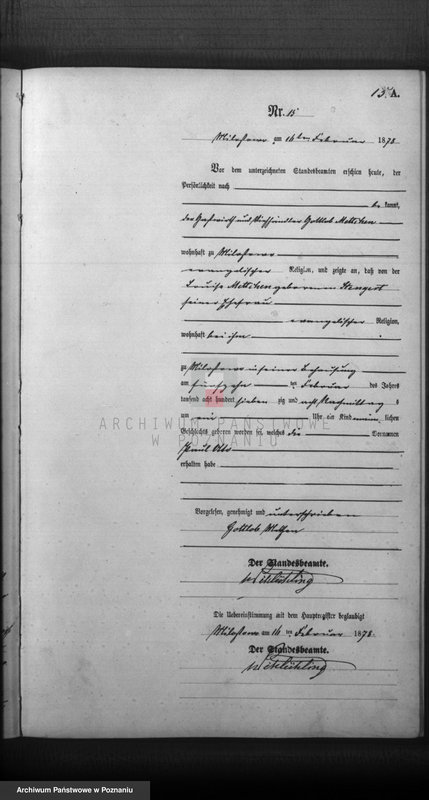 13. A.
Nr. 15
Milostowo am 16ten Februar 1878
Vor dem unterzeichneten Standesbeamten erschien heute, der
Persönlichkeit nach
be kannt,
der Gastwirth und Gottlob
wohnhaft zu Milostowo
evangelischer Religion, und zeigte an, daß von der
Louise geborenen
seiner Ehefrau
evangelischer Religion,
wohnhaft bei ihm
zu Milostowo in seiner Behausung
am fünfzehn ten Februar des Jahres
tausend acht hundert sieben zig und acht Nachmittag s
um Uhr ein Kind männ lichen
Geschlechts geboren worden sei, welches die Vornamen
Paul Otto
erhalten habe
Vorgelesen, genehmigt und unterschrieben
Gottlob
Der Standesbeamte.
Die Uebereinstimmung mit dem Hauptregister beglaubigt
Milostowo am 16 ten Februar 1878
Der Standesbeamte.
ARCHIWUM PAŃSTWOWE
W POZNANIU
Archiwum Państwowe w Poznaniu